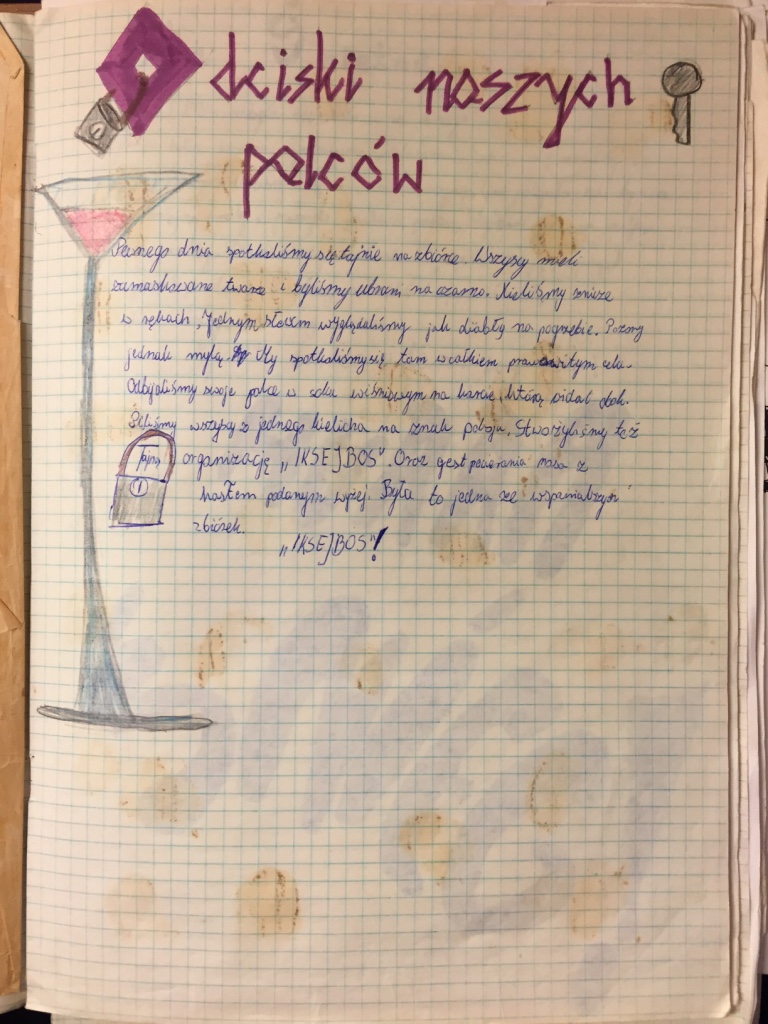 Odciski naszych
palców
Pewnego dnia spotkaliśmy się tajnie na zbiórce. Wszyscy mieli
zamaskowane twarze i byliśmy ubrani na czarno. Nieliśmy znicze
w rękach, Jednym słowem wyglądaliśmy jak diabły na pogrzebie. Pozory
jednak mylą. My spotkaliśmy się tam w całkiem prawowitym celu.
Odbijaliśmy swoje palce w soku wiśniowym na karcie, którą widać obok.
Piliśmy wszyscy z jednego kielicha na znak pokoju. Stworzyliśmy też
Tajna organizację „IKSEJBOS". Oraz gest pocierania nosa z
hasłem podanym wyżej. Była to jedna ze wspanialszych
zbiórek.
„IKSEJBOS"!